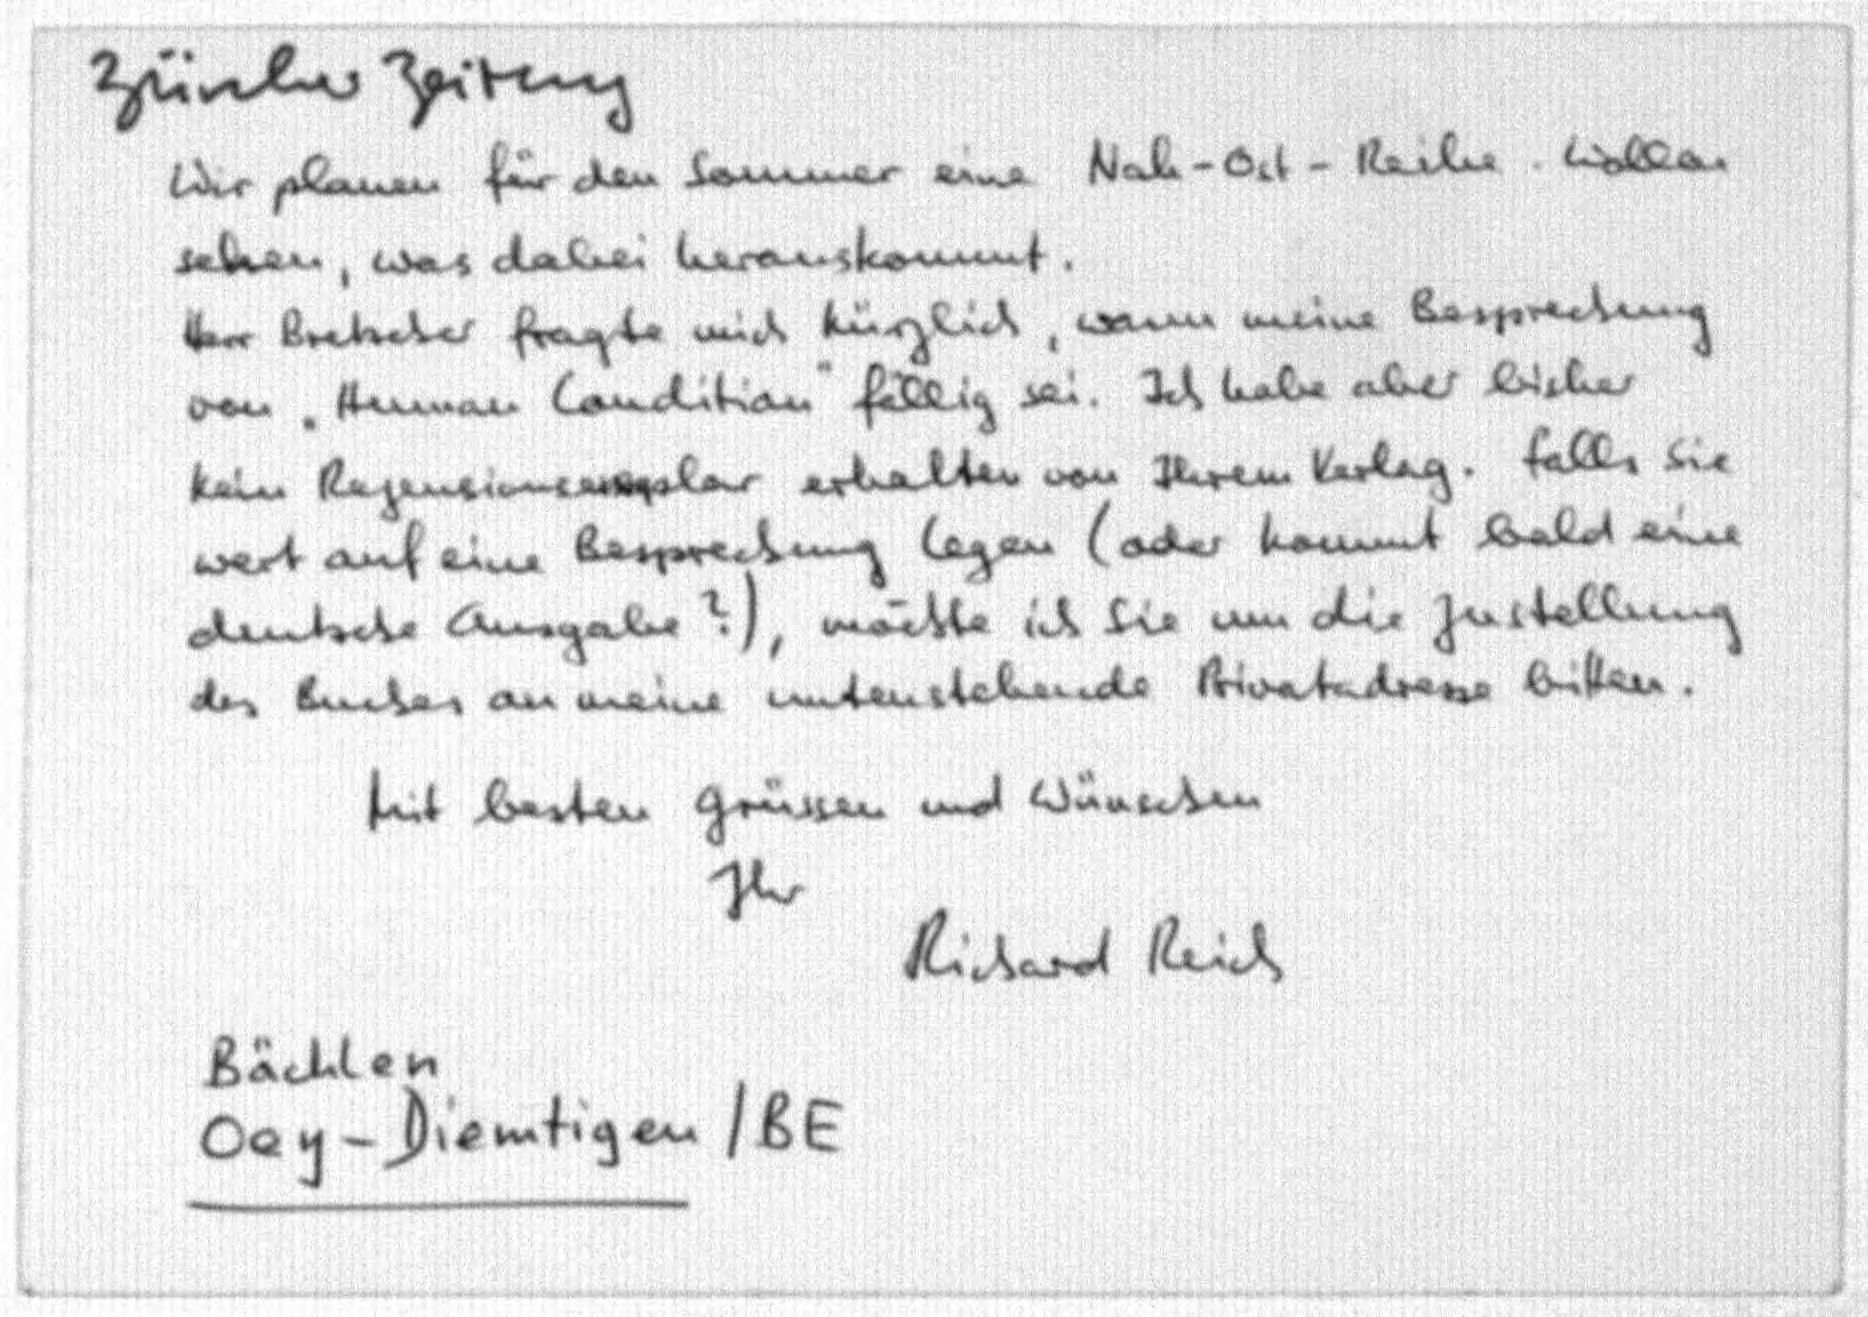 Zürcher Zeitung
Wir planen für den Sommer eine Nah-Ost-Reihe. Wollen
sehen, was dabei herauskommt.
Herr Bretscher fragte mich kürzlich, wann meine Besprechung
von „Human Condition" fällig sei. Ich habe aber bisher
kein Rezensionsexemplar erhalten von Ihrem Verlag. Falls Sie
wert auf eine Besprechung legen (oder kommt bald eine
deutsche Ausgabe?), möchte ich Sie um die Zustellung
des Buches an meine untenstehende Privatadresse bitten.
Mit besten Grüssen und Wünschen
Ihr
Richard Reich
Bächlen
Oey-Diemtigen /BE